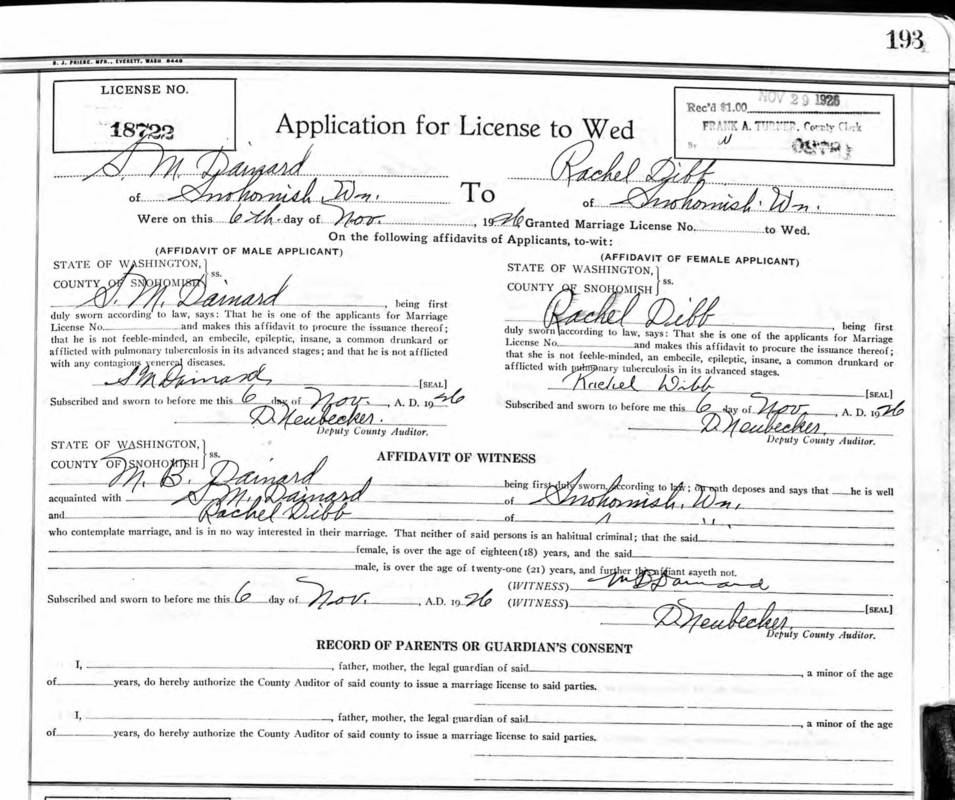 193
R. J. PRIEBE. MFR., EVERETT, WASH 8440
LICENSE NO.
18722
Application for License to Wed
NOV 29 1926
Rec'd $1.00
FRANK A. TURNER, County Clerk
By
DEPUTY
S. M. Dainard
Rachel Dibb
of Snohomish, Wn. To of Snohomish. Wn.
Were on this 6th day of Nov. , 1926 Granted Marriage License No. to Wed.
On the following affidavits of Applicants, to-wit:
(AFFIDAVIT OF MALE APPLICANT)
STATE OF WASHINGTON, } ss.
COUNTY OF SNOHOMISH
S. M. Dainard , being first
duly sworn according to law, says: That he is one of the applicants for Marriage
License No. and makes this affidavit to procure the issuance thereof;
that he is not feeble-minded, an embecile, epileptic, insane, a common drunkard or
afflicted with pulmonary tuberculosis in its advanced stages; and that he is not afflicted
with any contagious venereal diseases.
S M Dainard [SEAL]
Subscribed and sworn to before me this 6 day of Nov. , A. D. 1926
D. Neubecker.
Deputy County Auditor.
(AFFIDAVIT OF FEMALE APPLICANT)
STATE OF WASHINGTON, } ss.
COUNTY OF SNOHOMISH
Rachel Dibb , being first
duly sworn according to law, says: That she is one of the applicants for Marriage
License No. and makes this affidavit to procure the issuance thereof;
that she is not feeble-minded, an embecile, epileptic, insane, a common drunkard or
afflicted with pulmonary tuberculosis in its advanced stages.
Rachel Dibb [SEAL]
Subscribed and sworn to before me this 6 day of Nov. , A. D. 1926
D. Neubecker.
Deputy County Auditor.
STATE OF WASHINGTON, } ss.
COUNTY OF SNOHOMISH
AFFIDAVIT OF WITNESS
M. B. Dainard being first duly sworn, according to law; on oath deposes and says that he is well
acquainted with S. M. Dainard of Snohomish, Wn.
and Rachel Dibb of " "
who contemplate marriage, and is in no way interested in their marriage. That neither of said persons is an habitual criminal; that the said
female, is over the age of eighteen (18) years, and the said
male, is over the age of twenty-one (21) years, and further this affiant sayeth not.
(WITNESS) M B Dainard
Subscribed and sworn to before me this 6 day of Nov. , A.D. 1926 (WITNESS) [SEAL]
D. Neubecker.
Deputy County Auditor.
RECORD OF PARENTS OR GUARDIAN'S CONSENT
I, , father, mother, the legal guardian of said , a minor of the age
of years, do hereby authorize the County Auditor of said county to issue a marriage license to said parties.
I, , father, mother, the legal guardian of said , a minor of the age
of years, do hereby authorize the County Auditor of said county to issue a marriage license to said parties.